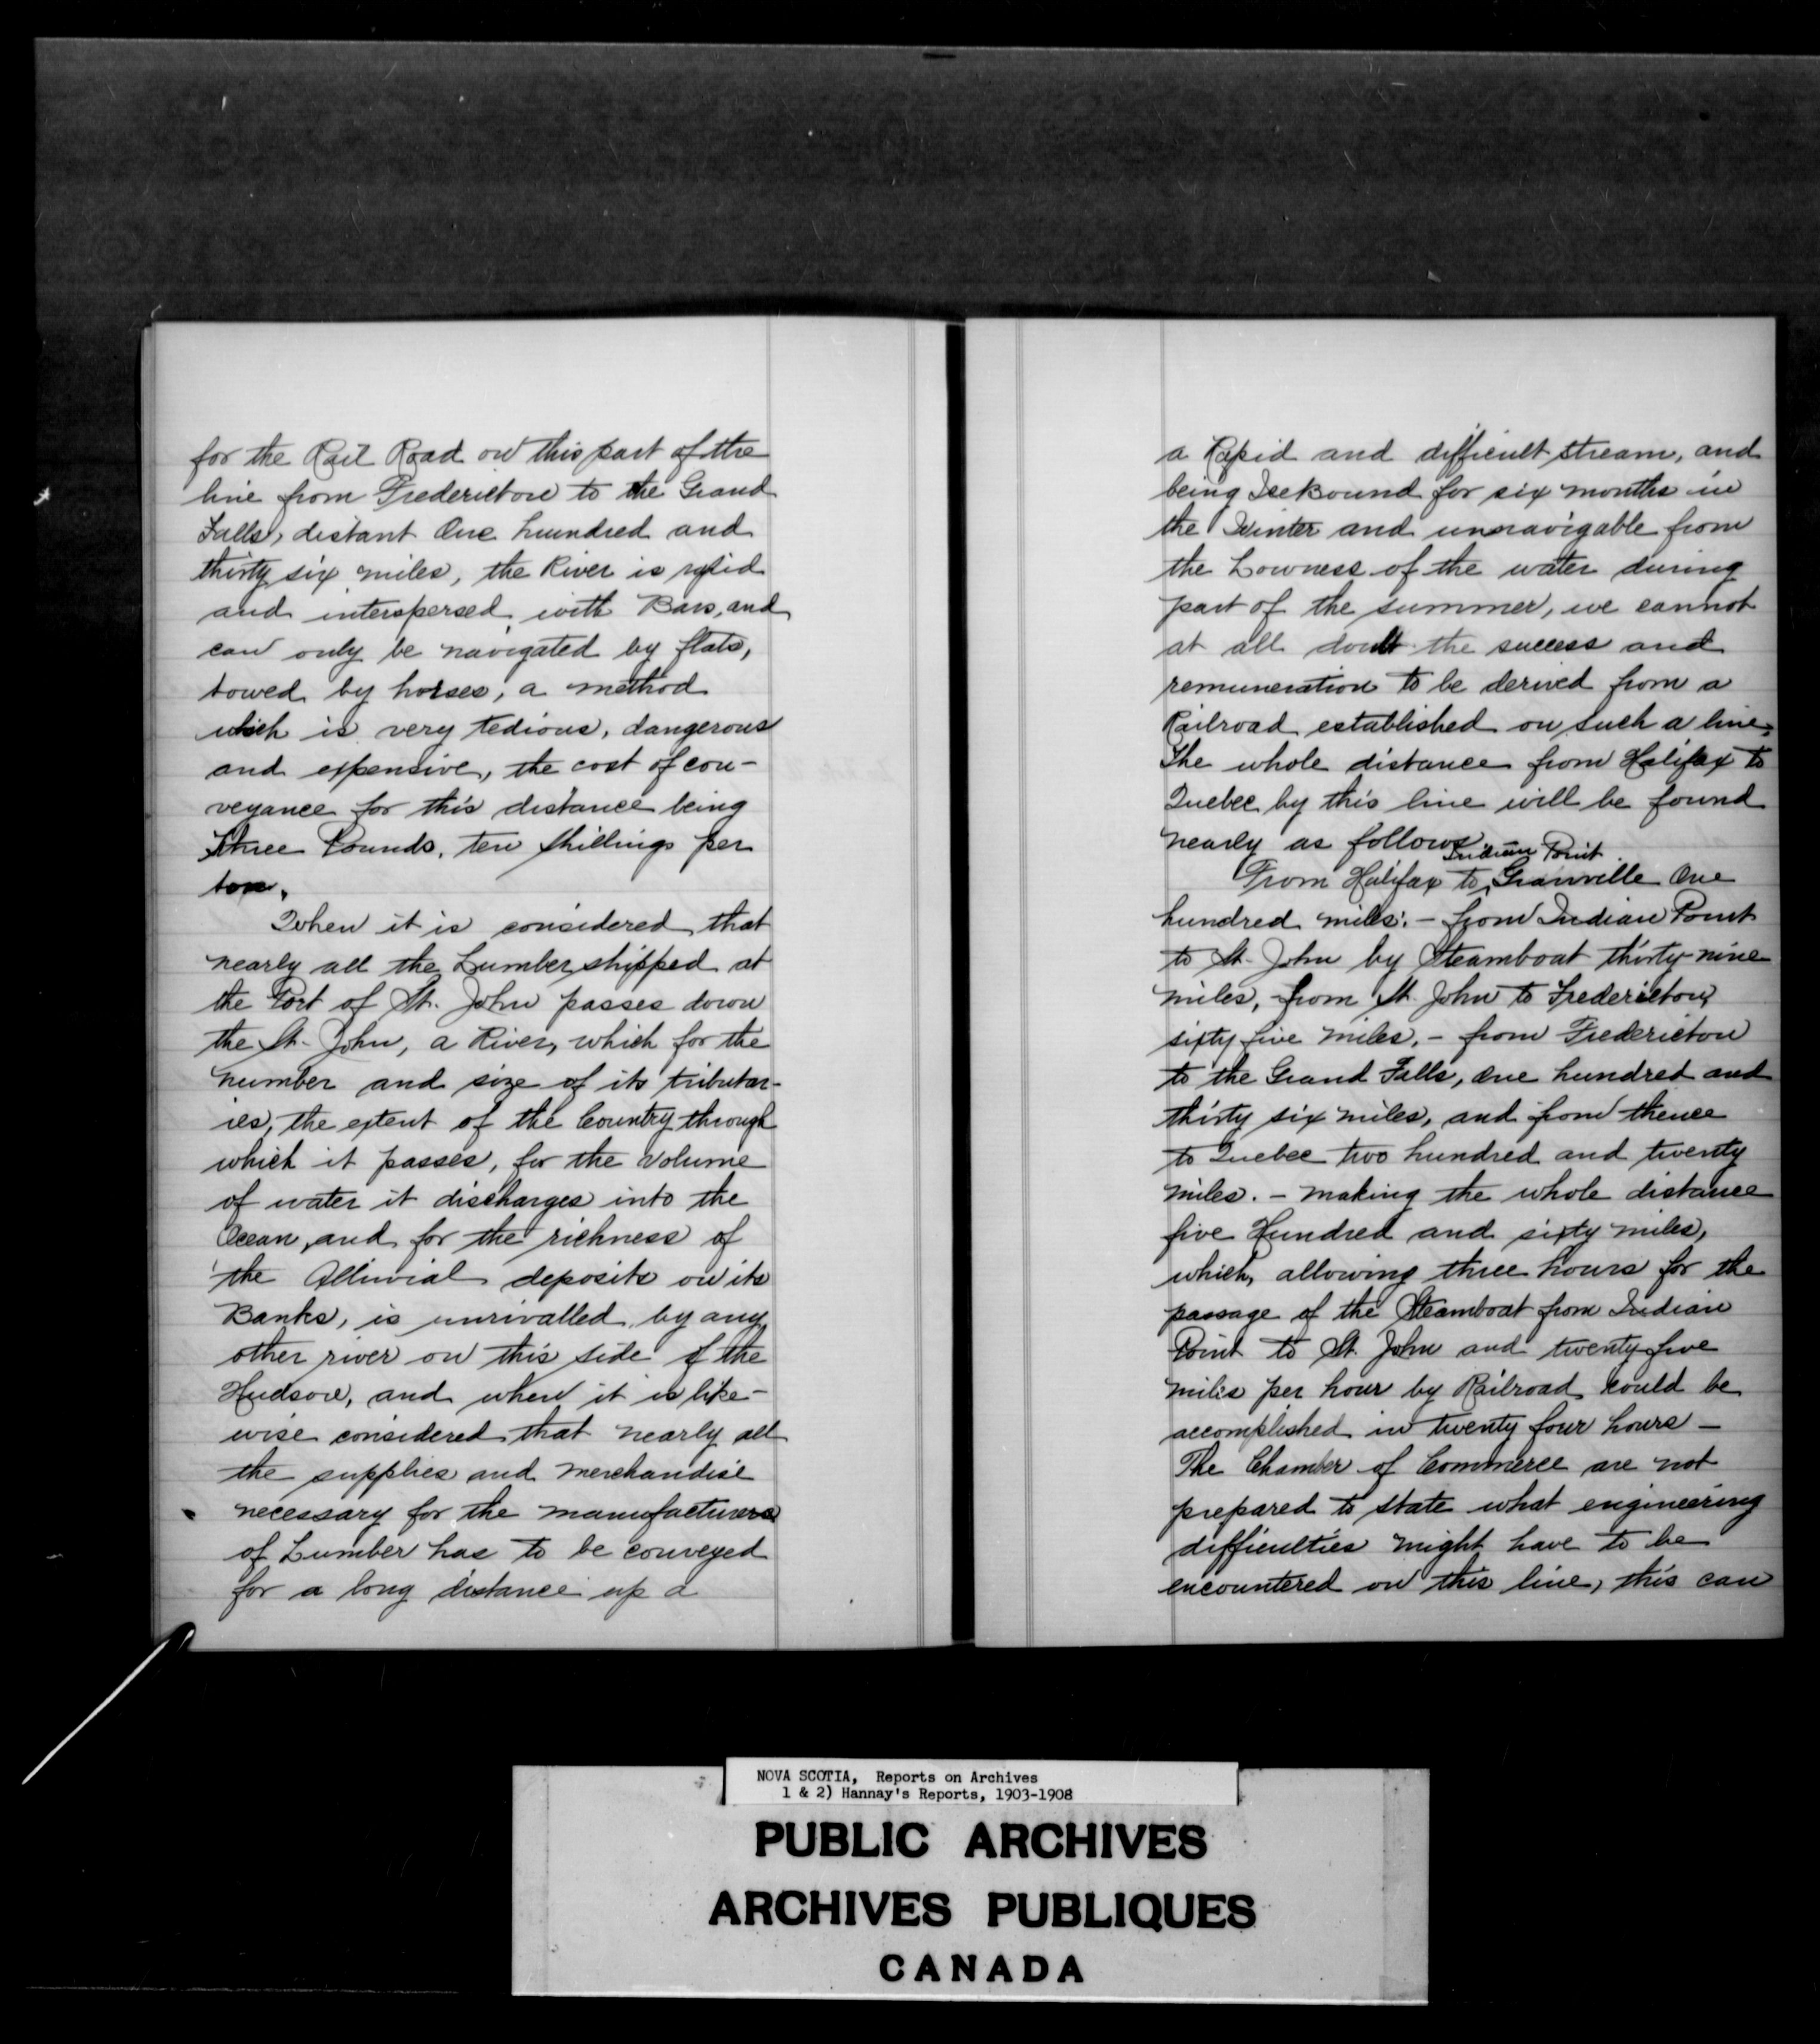 for the Rail Road on this part of the
line from Fredericton to the Grand
Falls, distant One hundred and
thirty six miles, the River is rapid
and interspersed with Bars, and
can only be navigated by flats,
towed by horses, a method
which is very tedious, dangerous
and expensive, the cost of con-
veyance for this distance being
Three Pounds, ten shillings per
ton.
When it is considered that
nearly all the Lumber shipped at
the Port of St. John passes down
the St. John, a River, which for the
number and size of its tributar-
ies, the extent of the Country through
which it passes, for the volume
of water it discharges into the
Ocean, and for the richness of
the Alluvial deposits on its
Banks, is unrivalled by any
other river on this side of the
Hudson, and when it is like-
wise considered that nearly all
the supplies and merchandise
necessary for the manufacturers
of Lumber has to be conveyed
for a long distance up a
a Rapid and difficult stream, and
being Ice Bound for six months in
the Winter and unnavigable from
the Lowness of the water during
part of the summer, we cannot
at all doubt the success and
remuneration to be derived from a
Railroad established on such a line,
The whole distance from Halifax to
Quebec by this line will be found
nearly as follows
Indian Point
From Halifax to Granville One
hundred miles: - from Indian Point
to St. John by Steamboat thirty-nine
miles, - from St. John to Fredericton,
sixty five miles, - from Fredericton
to the Grand Falls, One hundred and
thirty six miles, and from thence
to Quebec two hundred and twenty
miles. - making the whole distance
five Hundred and sixty miles,
which, allowing three hours for the
passage of the Steamboat from Indian
Point to St. John and twenty five
miles per hour by Railroad could be
accomplished in twenty four hours -
The Chamber of Commerce are not
prepared to state what engineering
difficulties might have to be
encountered on this line, this can
NOVA SCOTIA, Reports on Archives
1 & 2) Hannay's Reports, 1903-1908
PUBLIC ARCHIVES
ARCHIVES PUBLIQUES
CANADA